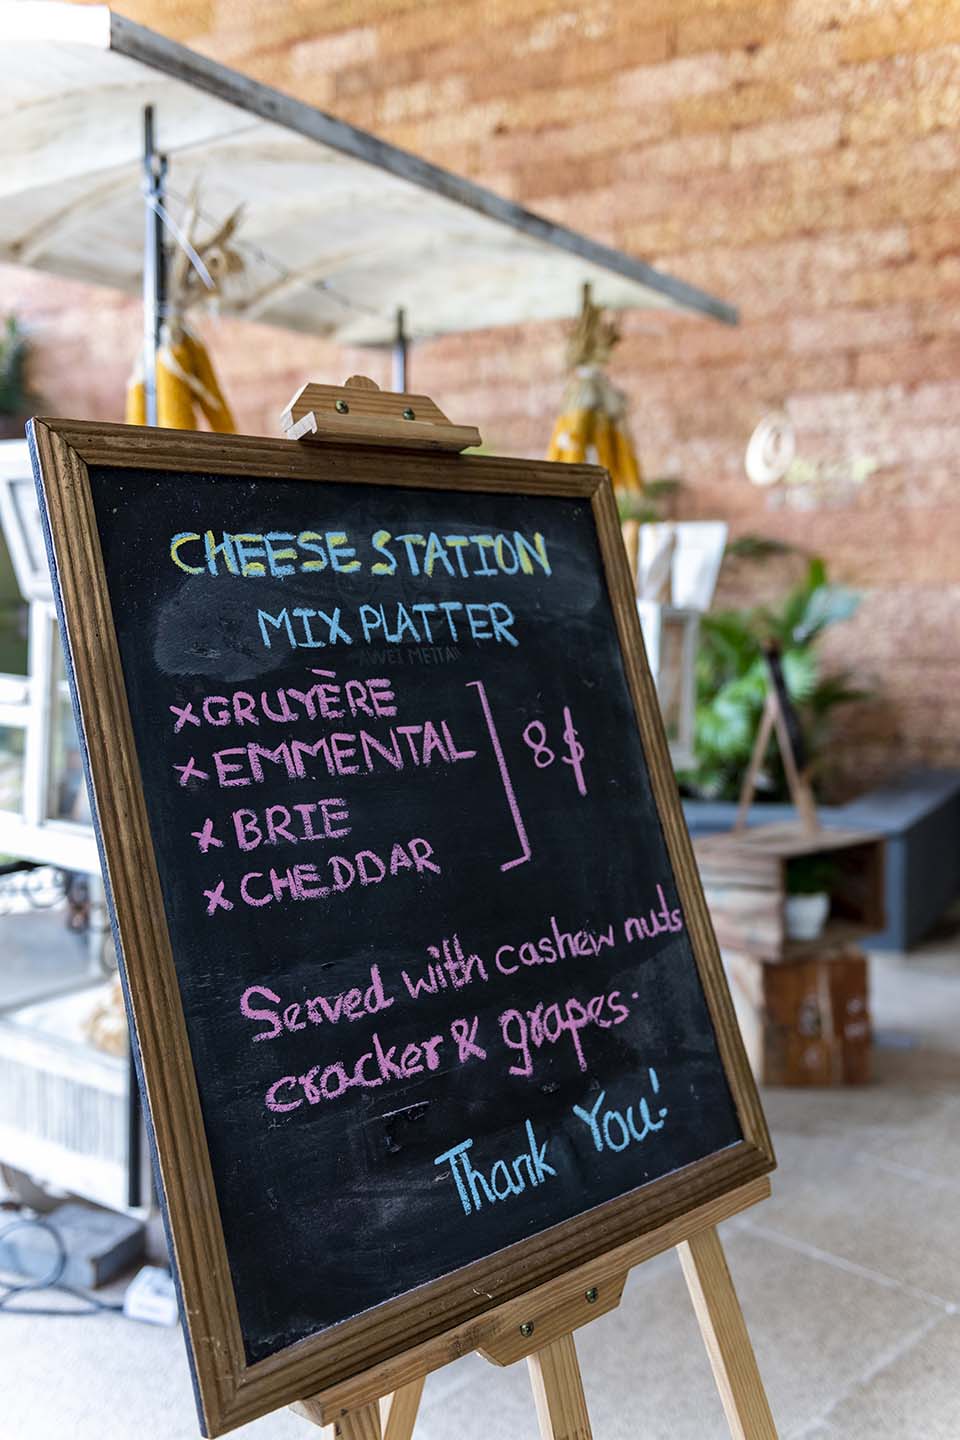 CHEESE STATION
MIX PLATTER
AWEI METTA
xGRUYÈRE
xEMMENTAL
xBRIE
xCHEDDAR
8$
Served with cashew nuts
cracker & grapes.
Thank You!